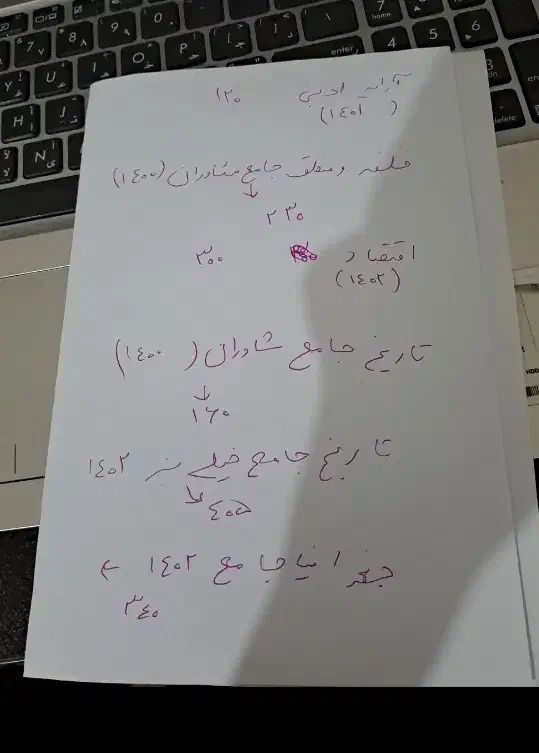 آرایه ادبی ۱۲۰
(۱۴۰۱)
فلسفه و منطق جامع مشاوران (۱۴۰۰)
↓
۲۳۰
اقتصاد ۳۰۰
(۱۴۰۲)
تاریخ جامع مشاوران (۱۴۰۰)
↓
۱۶۰
تاریخ جامع خیلی سبز ۱۴۰۲
↓
۴۰۵
جغرافیا جامع ۱۴۰۲ ←
۳۴۰